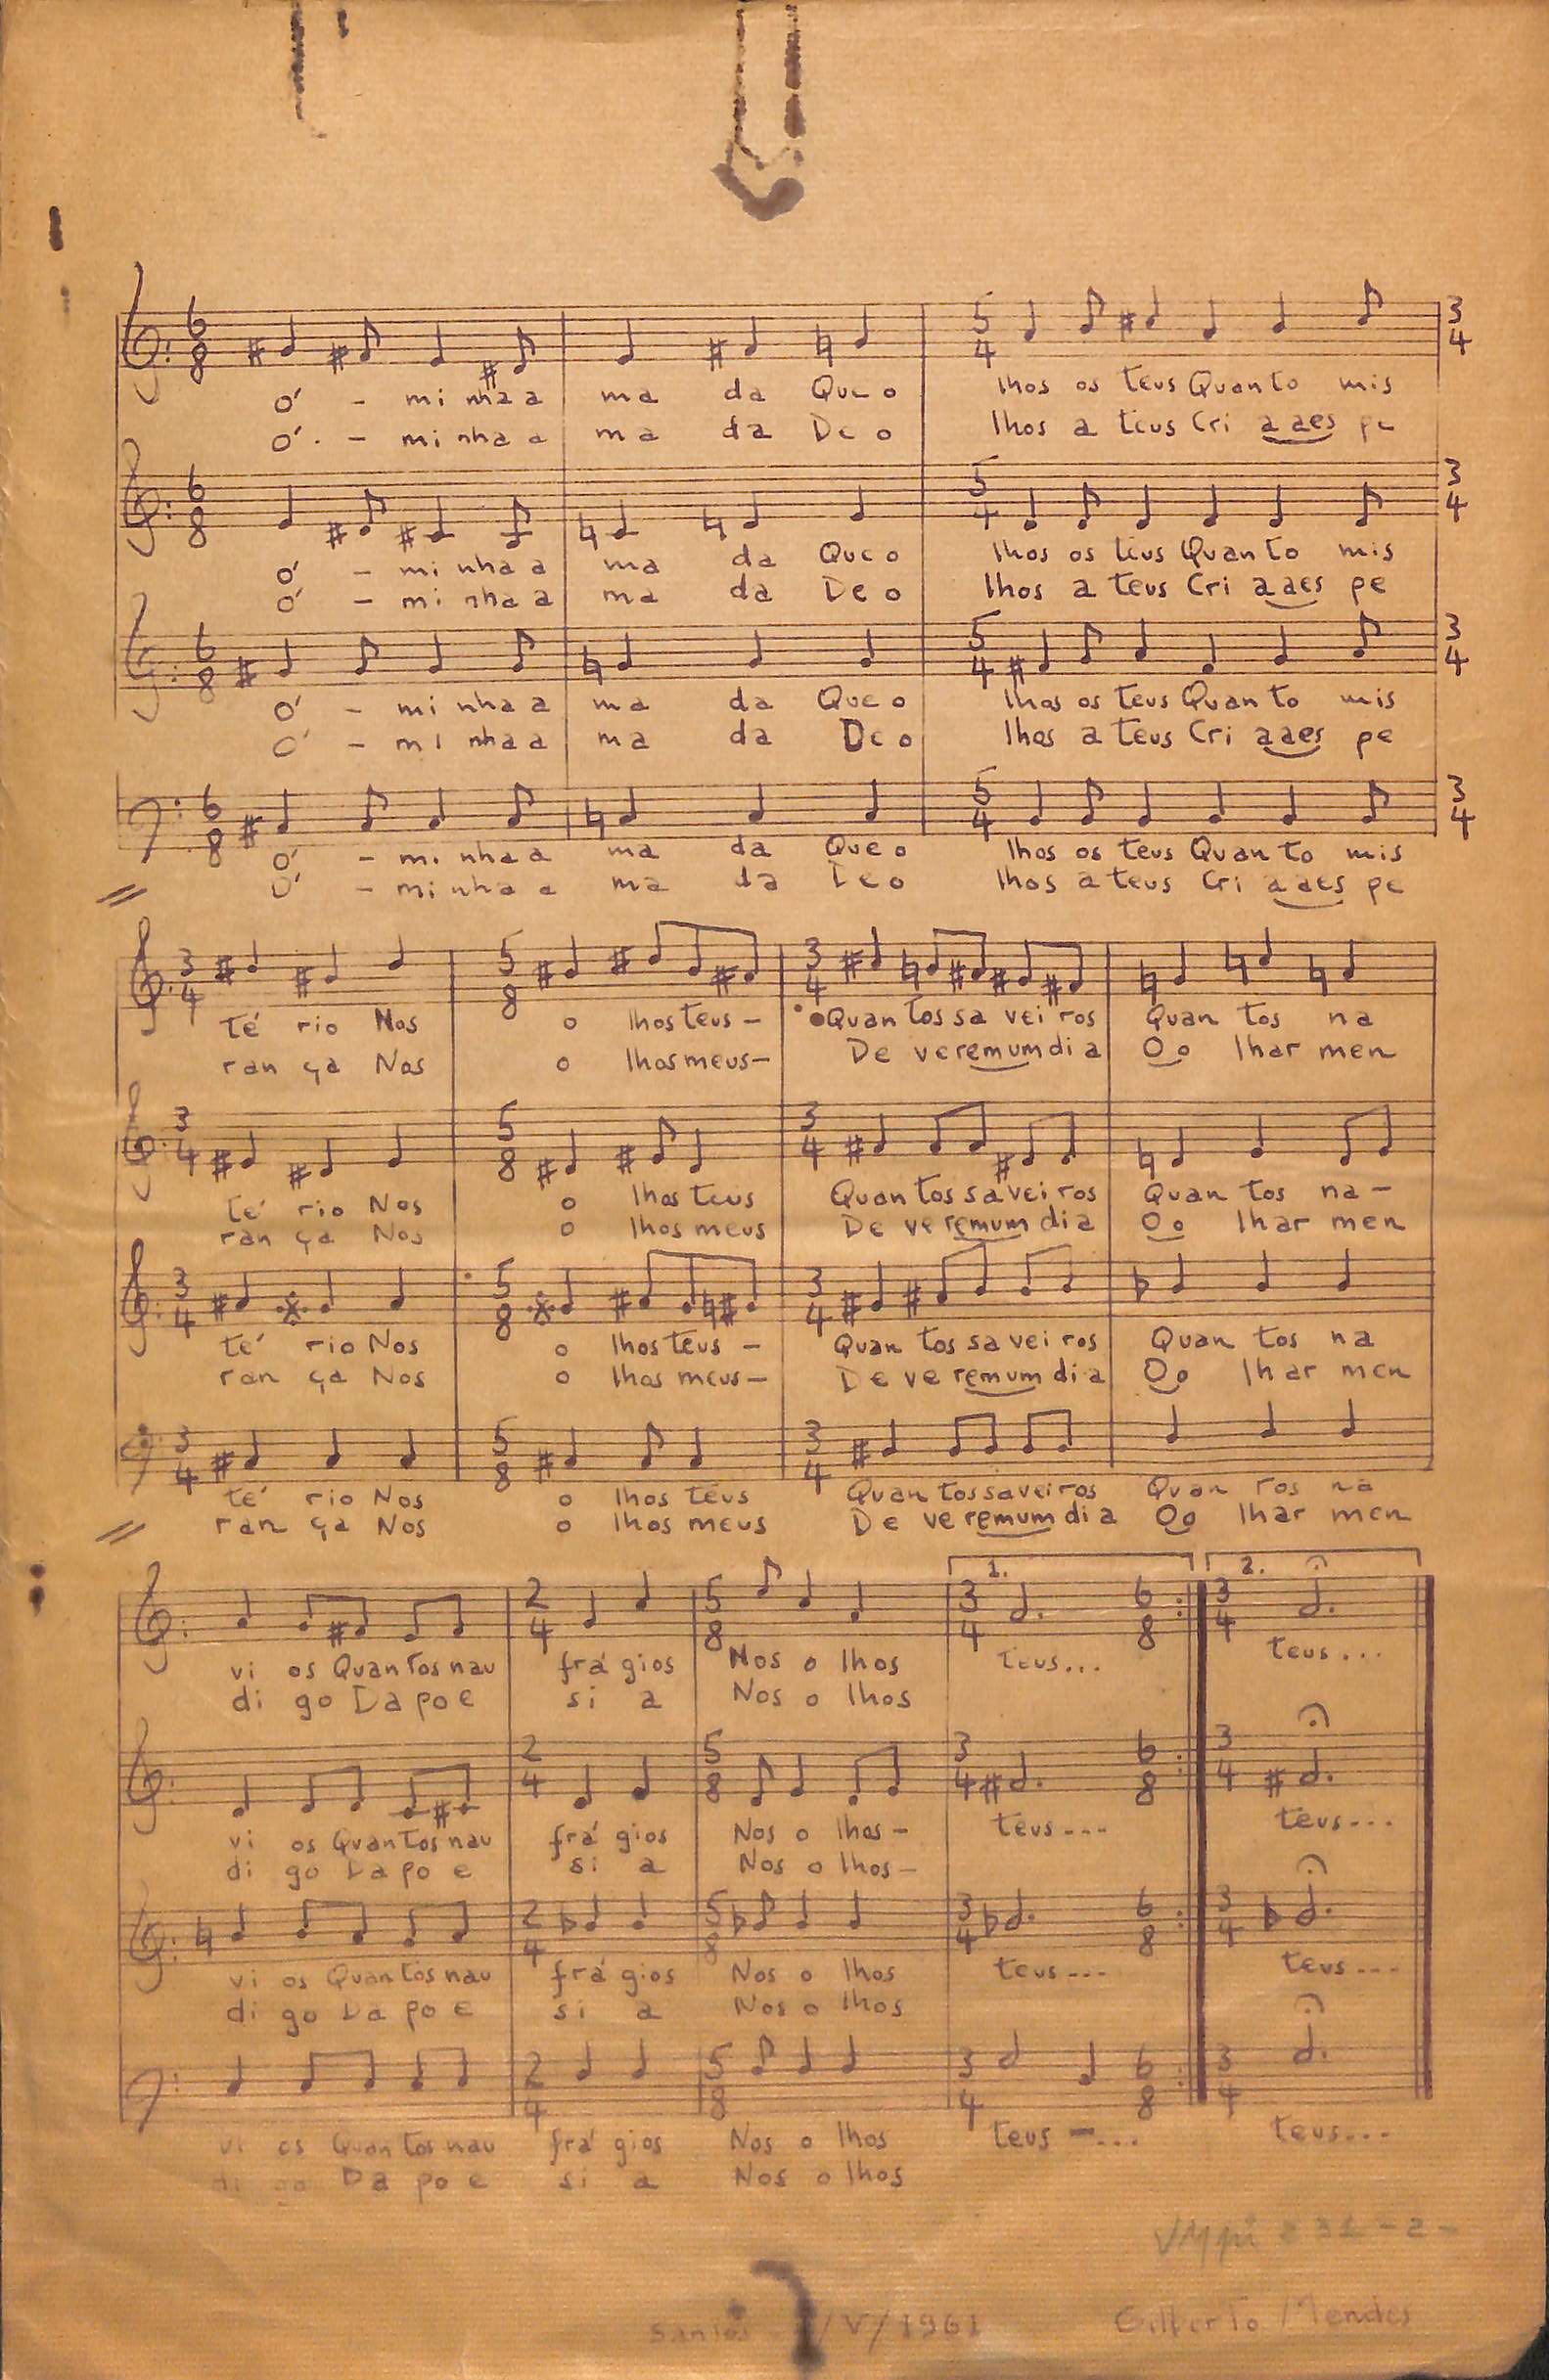 6 8 5 4 3 4
O' - mi nha a ma da Que o lhos os teus Quan to mis
O' - mi nha a ma da De o lhos a teus Cri a a es pe
6 8 5 4 3 4
O' - mi nha a ma da Que o lhos os teus Quan to mis
O' - mi nha a ma da De o lhos a teus Cri a a es pe
6 8 5 4 3 4
O' - mi nha a ma da Que o lhos os teus Quan to mis
O' - mi nha a ma da De o lhos a teus Cri a a es pe
6 8 5 4 3 4
O' - mi nha a ma da Que o lhos os teus Quan to mis
O' - mi nha a ma da De o lhos a teus Cri a a es pe
3 4 5 8 3 4
té rio Nos o lhos teus - Quan tos sa vei ros Quan tos na
ran ça Nos o lhos meus - De ve rem um di a O o lhar men
3 4 5 8 3 4
té rio Nos o lhos teus Quan tos sa vei ros Quan tos na -
ran ça Nos o lhos meus De ve rem um di a O o lhar men
3 4 5 8 3 4
té rio Nos o lhos teus - Quan tos sa vei ros Quan tos na
ran ça Nos o lhos meus - De ve rem um di a O o lhar men
3 4 5 8 3 4
té rio Nos o lhos teus Quan tos sa vei ros Quan tos na
ran ça Nos o lhos meus De ve rem um di a O o lhar men
1. 2.
2 4 5 8 3 4 6 8 3 4
vi os Quan tos nau frá gios Nos o lhos teus... teus...
di go Da po e si a Nos o lhos
2 4 5 8 3 4 6 8 3 4
vi os Quan tos nau frá gios Nos o lhos - teus... teus...
di go Da po e si a Nos o lhos -
2 4 5 8 3 4 6 8 3 4
vi os Quan tos nau frá gios Nos o lhos teus... teus...
di go Da po e si a Nos o lhos
2 4 5 8 3 4 6 8 3 4
vi os Quan tos nau frá gios Nos o lhos teus -... teus...
di go Da po e si a Nos o lhos
- 2 -
Santos /V/1961 Gilberto Mendes